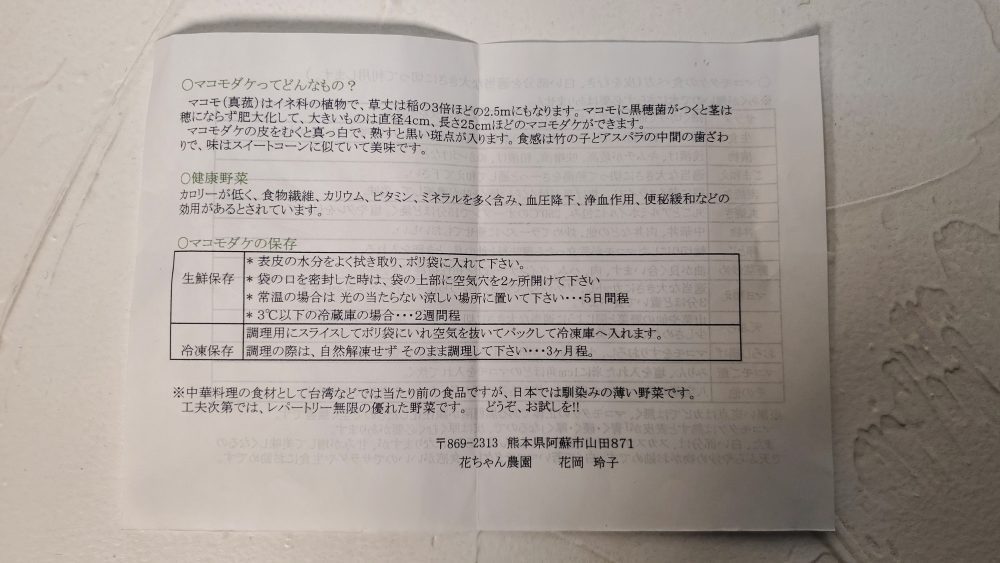 ○マコモダケってどんなもの？
マコモ(真菰)はイネ科の植物で、草丈は稲の3倍ほどの2.5mにもなります。マコモに黒穂菌がつくと茎は
穂にならず肥大化して、大きいものは直径4cm、長さ25cmほどのマコモダケができます。
マコモダケの皮をむくと真っ白で、熟すと黒い斑点が入ります。食感は竹の子とアスパラの中間の歯ざわ
りで、味はスイートコーンに似ていて美味です。
○健康野菜
カロリーが低く、食物繊維、カリウム、ビタミン、ミネラルを多く含み、血圧降下、浄血作用、便秘緩和などの
効用があるとされています。
○マコモダケの保存
生鮮保存
* 表皮の水分をよく拭き取り、ポリ袋に入れて下さい。
* 袋の口を密封した時は、袋の上部に空気穴を2ヶ所開けて下さい
* 常温の場合は 光の当たらない涼しい場所に置いて下さい・・・5日間程
* 3℃以下の冷蔵庫の場合・・・2週間程
冷凍保存
調理用にスライスしてポリ袋にいれ空気を抜いてパックして冷凍庫へ入れます。
調理の際は、自然解凍せず そのまま調理して下さい・・・3ヶ月程。
※中華料理の食材として台湾などでは当たり前の食品ですが、日本では馴染みの薄い野菜です。
工夫次第では、レパートリー無限の優れた野菜です。 どうぞ、お試しを!!
〒869-2313 熊本県阿蘇市山田871
花ちゃん農園 花岡 玲子